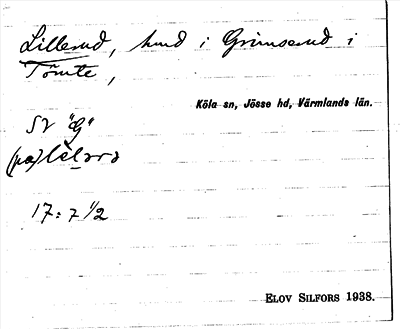 Lillerud, hmd i Grimserud i
Tömte,
Köla sn, Jösse hd, Värmlands län.
SV "G"
(på)
17: 7 1/2
ELOV SILFORS 1938.